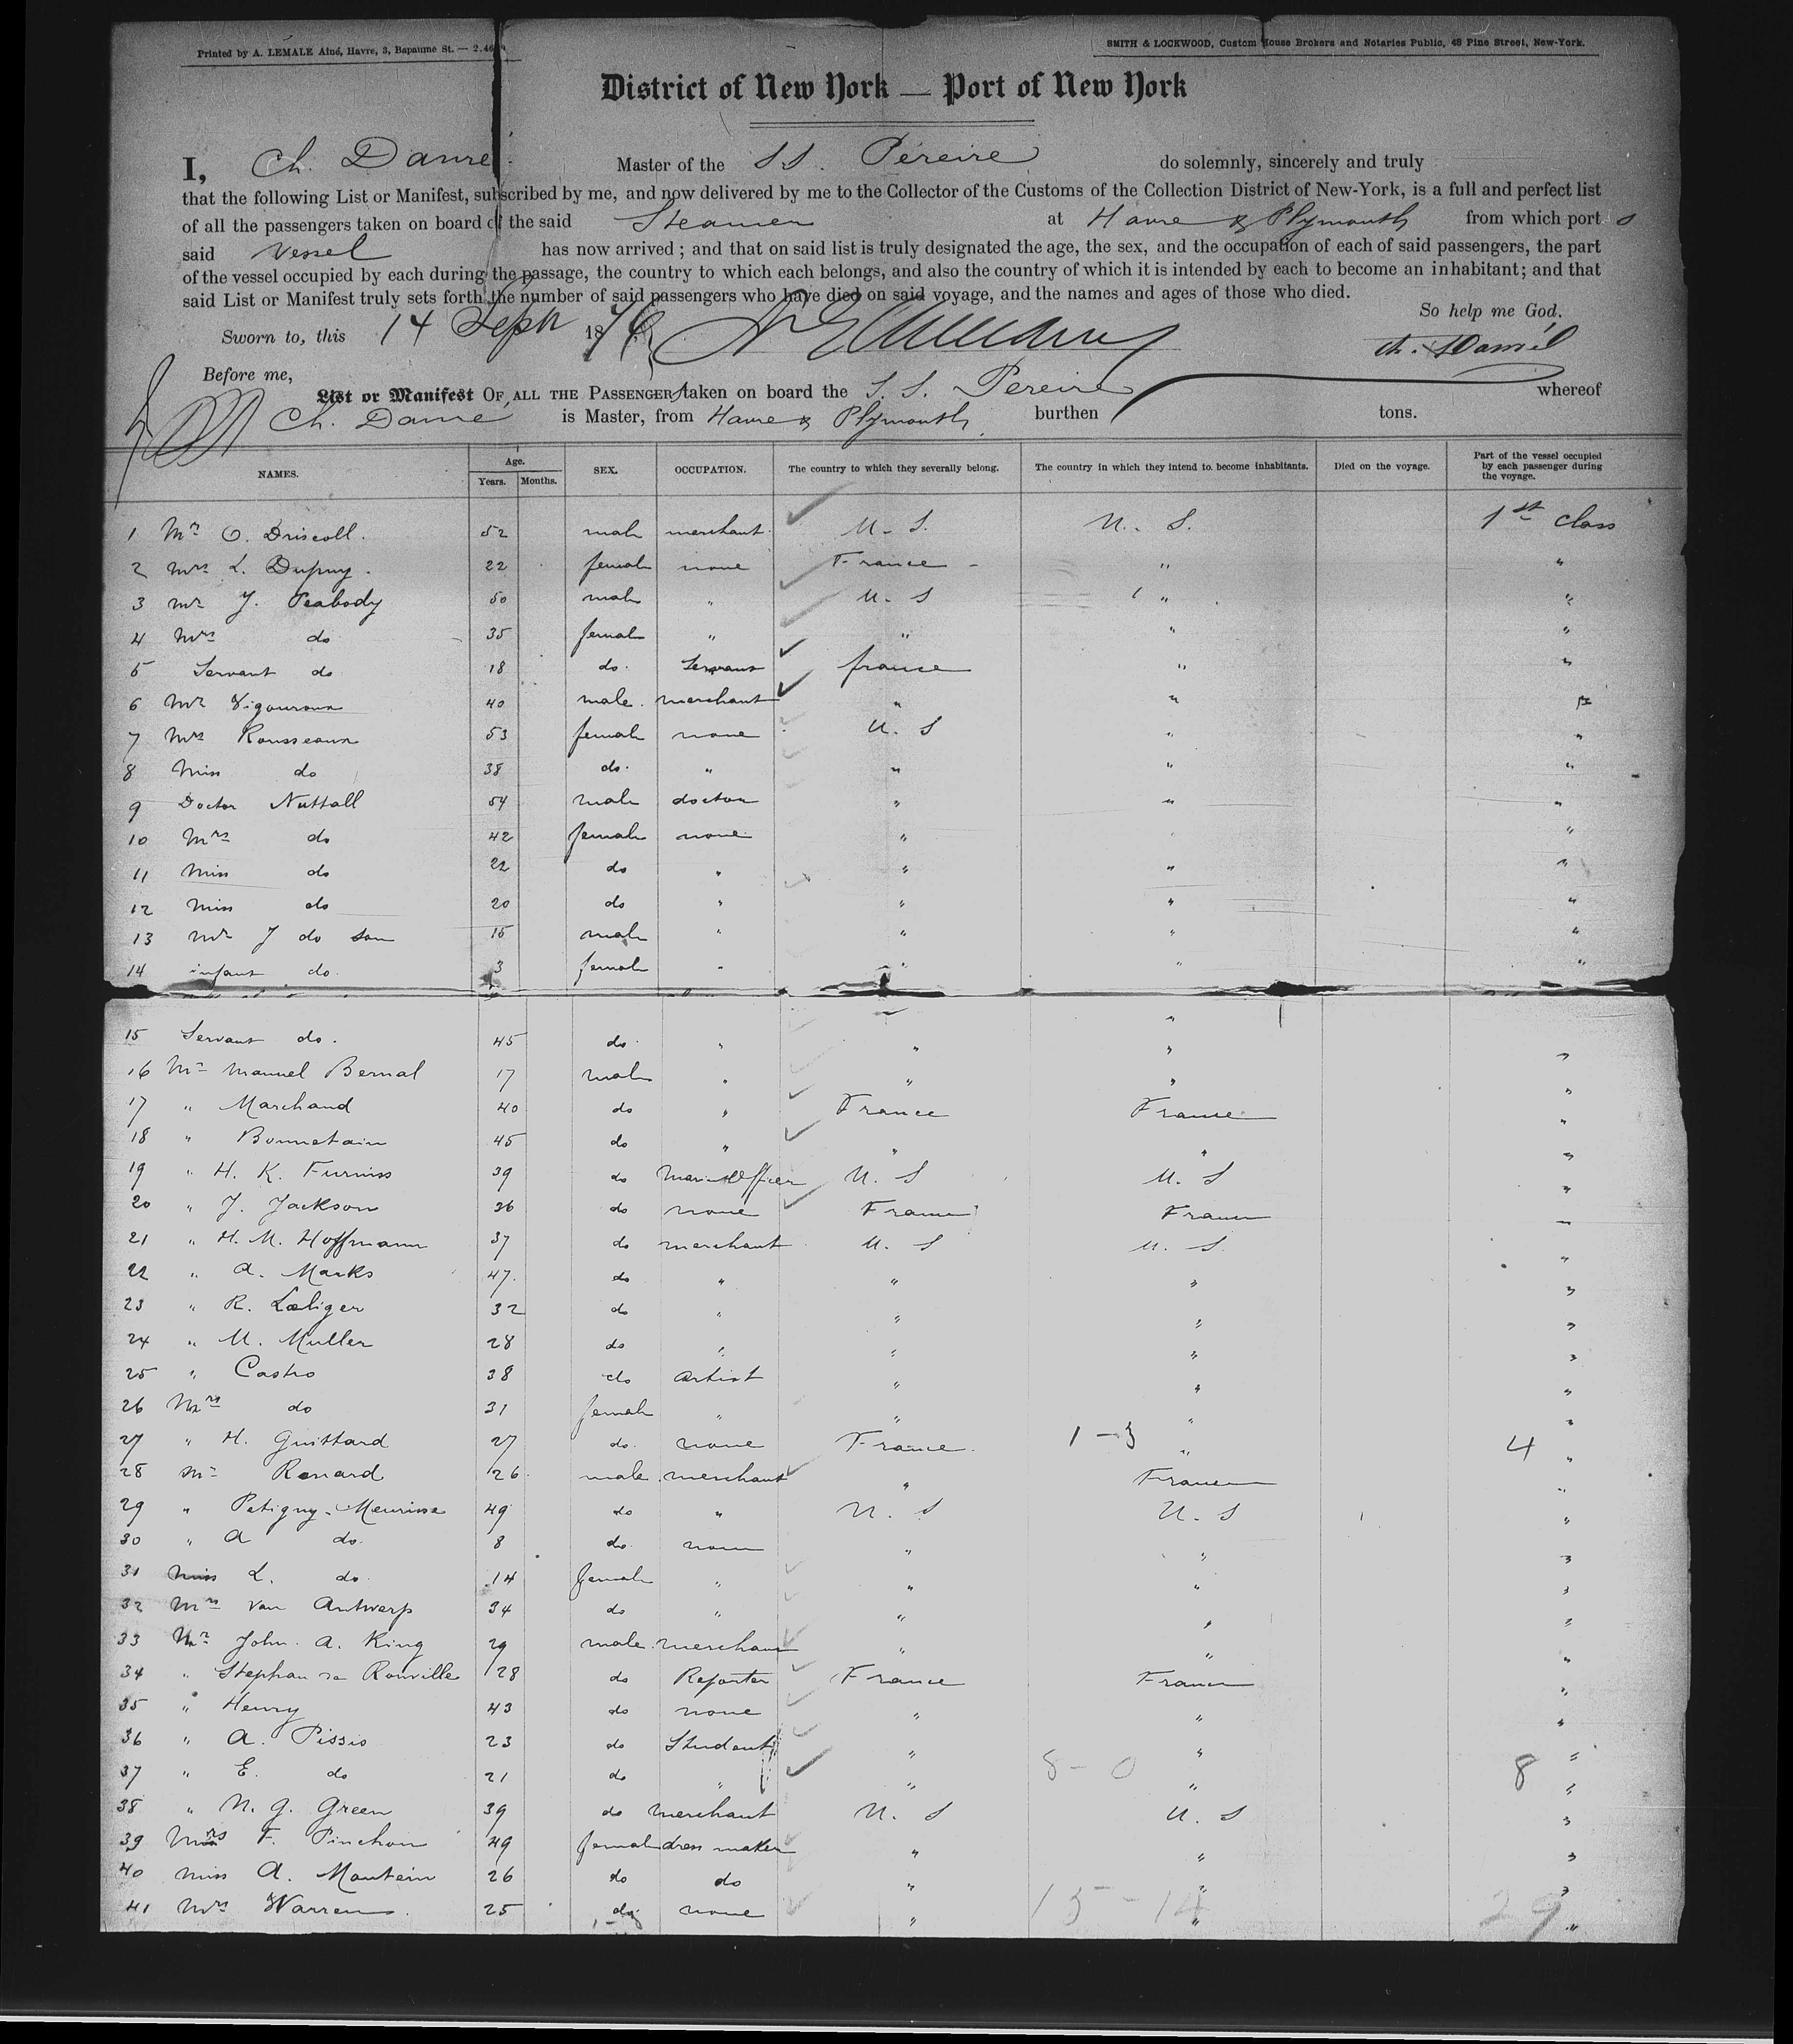 Printed by A. LEMALE Aîné, Havre, 3, Bapaume St. — 2.46
SMITH & LOCKWOOD, Custom House Brokers and Notaries Public, 48 Pine Street, New-York.
District of New York — Port of New York
I, Ch. Danré Master of the S.S. Péreire do solemnly, sincerely and truly
that the following List or Manifest, subscribed by me, and now delivered by me to the Collector of the Customs of the Collection District of New-York, is a full and perfect list
of all the passengers taken on board of the said Steamer at Havre & Plymouth from which port s
said vessel has now arrived ; and that on said list is truly designated the age, the sex, and the occupation of each of said passengers, the part
of the vessel occupied by each during the passage, the country to which each belongs, and also the country of which it is intended by each to become an inhabitant; and that
said List or Manifest truly sets forth the number of said passengers who have died on said voyage, and the names and ages of those who died.
So help me God.
Sworn to, this 14 Sept 1876
Before me,
List or Manifest OF ALL THE PASSENGERS taken on board the S. S. Pereire whereof
Ch. Danré is Master, from Havre & Plymouth burthen tons.
NAMES. Age. Years. Months. SEX. OCCUPATION. The country to which they severally belong. The country in which they intend to become inhabitants. Died on the voyage. Part of the vessel occupied by each passenger during the voyage.
1 Mr O. Driscoll. 52 male merchant U. S. U. S. 1st class
2 Mrs L. Dupuy. 22 female none France " "
3 Mr J. Peabody 50 male " U. S " "
4 Mrs do 35 female " " " "
5 Servant do 18 do. Servant france " "
6 Mr Vigouroux 40 male. merchant " " "
7 Mrs Rousseaux 53 female none U. S " "
8 Miss do 38 do. " " " "
9 Doctor Nuttall 54 male doctor " " "
10 Mrs do 42 female none " "
11 Miss do 22 do " " " "
12 Miss do 20 do " " " "
13 Mr J do son 15 male " " " "
14 infant do. 3 female " " " "
15 Servant do. 45 do. " " " "
16 Mr Manuel Bernal 17 male " " " "
17 " Marchand 40 do " France France "
18 " Bonnetain 45 do " " " "
19 " H. K. Furniss 39 do U. S U. S "
20 " J. Jackson 36 do none France France
21 " H. M. Hoffmann 37 do merchant U. S U. S "
22 " A. Marks 47. do " " " "
23 " R. Læliger 32 do " " " "
24 " M. Muller 28 do " " " "
25 " Castro 38 do artist " " "
26 Mrs do 31 female " " " "
27 " H. Guittard 27 do. none France. 1 - 3 " 4 "
28 Mr Renard 26. male merchant " France "
29 " Petigny-Meurisse 49 do " U. S U. S "
30 " A do. 8 do. none " " "
31 Miss L. do. 14 female " " " "
32 Mrs Van Antwerp 34 do " " " "
33 Mr John. A. King 29 male. merchant " " "
34 " Stephan de Rouville 28 do Reporter France France "
35 " Henry 43 do none " " "
36 " A. Pissis 23 do Student " " "
37 " E. do 21 do " " 8 - 0 " 8 "
38 " N. G. Green 39 do merchant U. S U. S "
39 Mrs F. Pinchon 49 female dress maker " " "
40 Miss A. Mantein 26 do do " " "
41 Mrs Warren. 25 do. none " 15 - 14 " 29 "